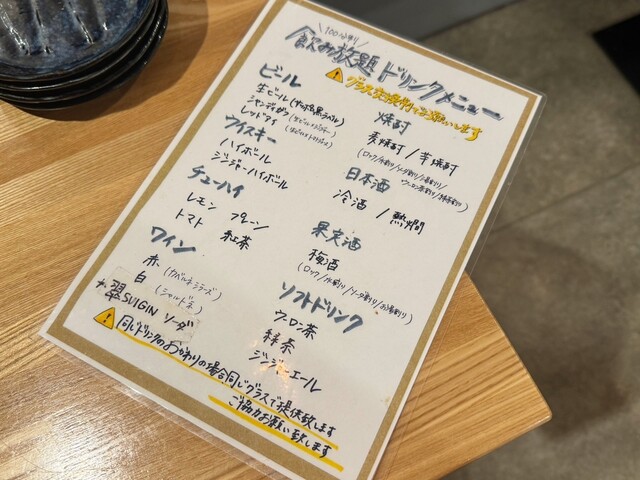 飲み放題 ドリンクメニュー
⚠グラス交換制でお願いします
ビール
生ビール(サッポロ黒ラベル)
シャンディガフ(生ビール+ジンジャー)
レッドアイ(生ビール+トマト)
ウイスキー
ハイボール
ジンジャーハイボール
チューハイ
レモン プレーン
トマト 紅茶
ワイン
赤(カベルネシラーズ)
白(シャルドネ)
翠SUIGIN ソーダ
焼酎
麦焼酎 / 芋焼酎
(ロック/水割り/ソーダ割り/お湯割り/
ウーロン茶割り/緑茶割り)
日本酒
冷酒 / 熱燗
果実酒
梅酒
(ロック/水割り/ソーダ割り/お湯割り)
ソフトドリンク
ウーロン茶
緑茶
ジンジャーエール
⚠同じドリンクのおかわりの場合同じグラスで提供致します
ご協力お願い致します